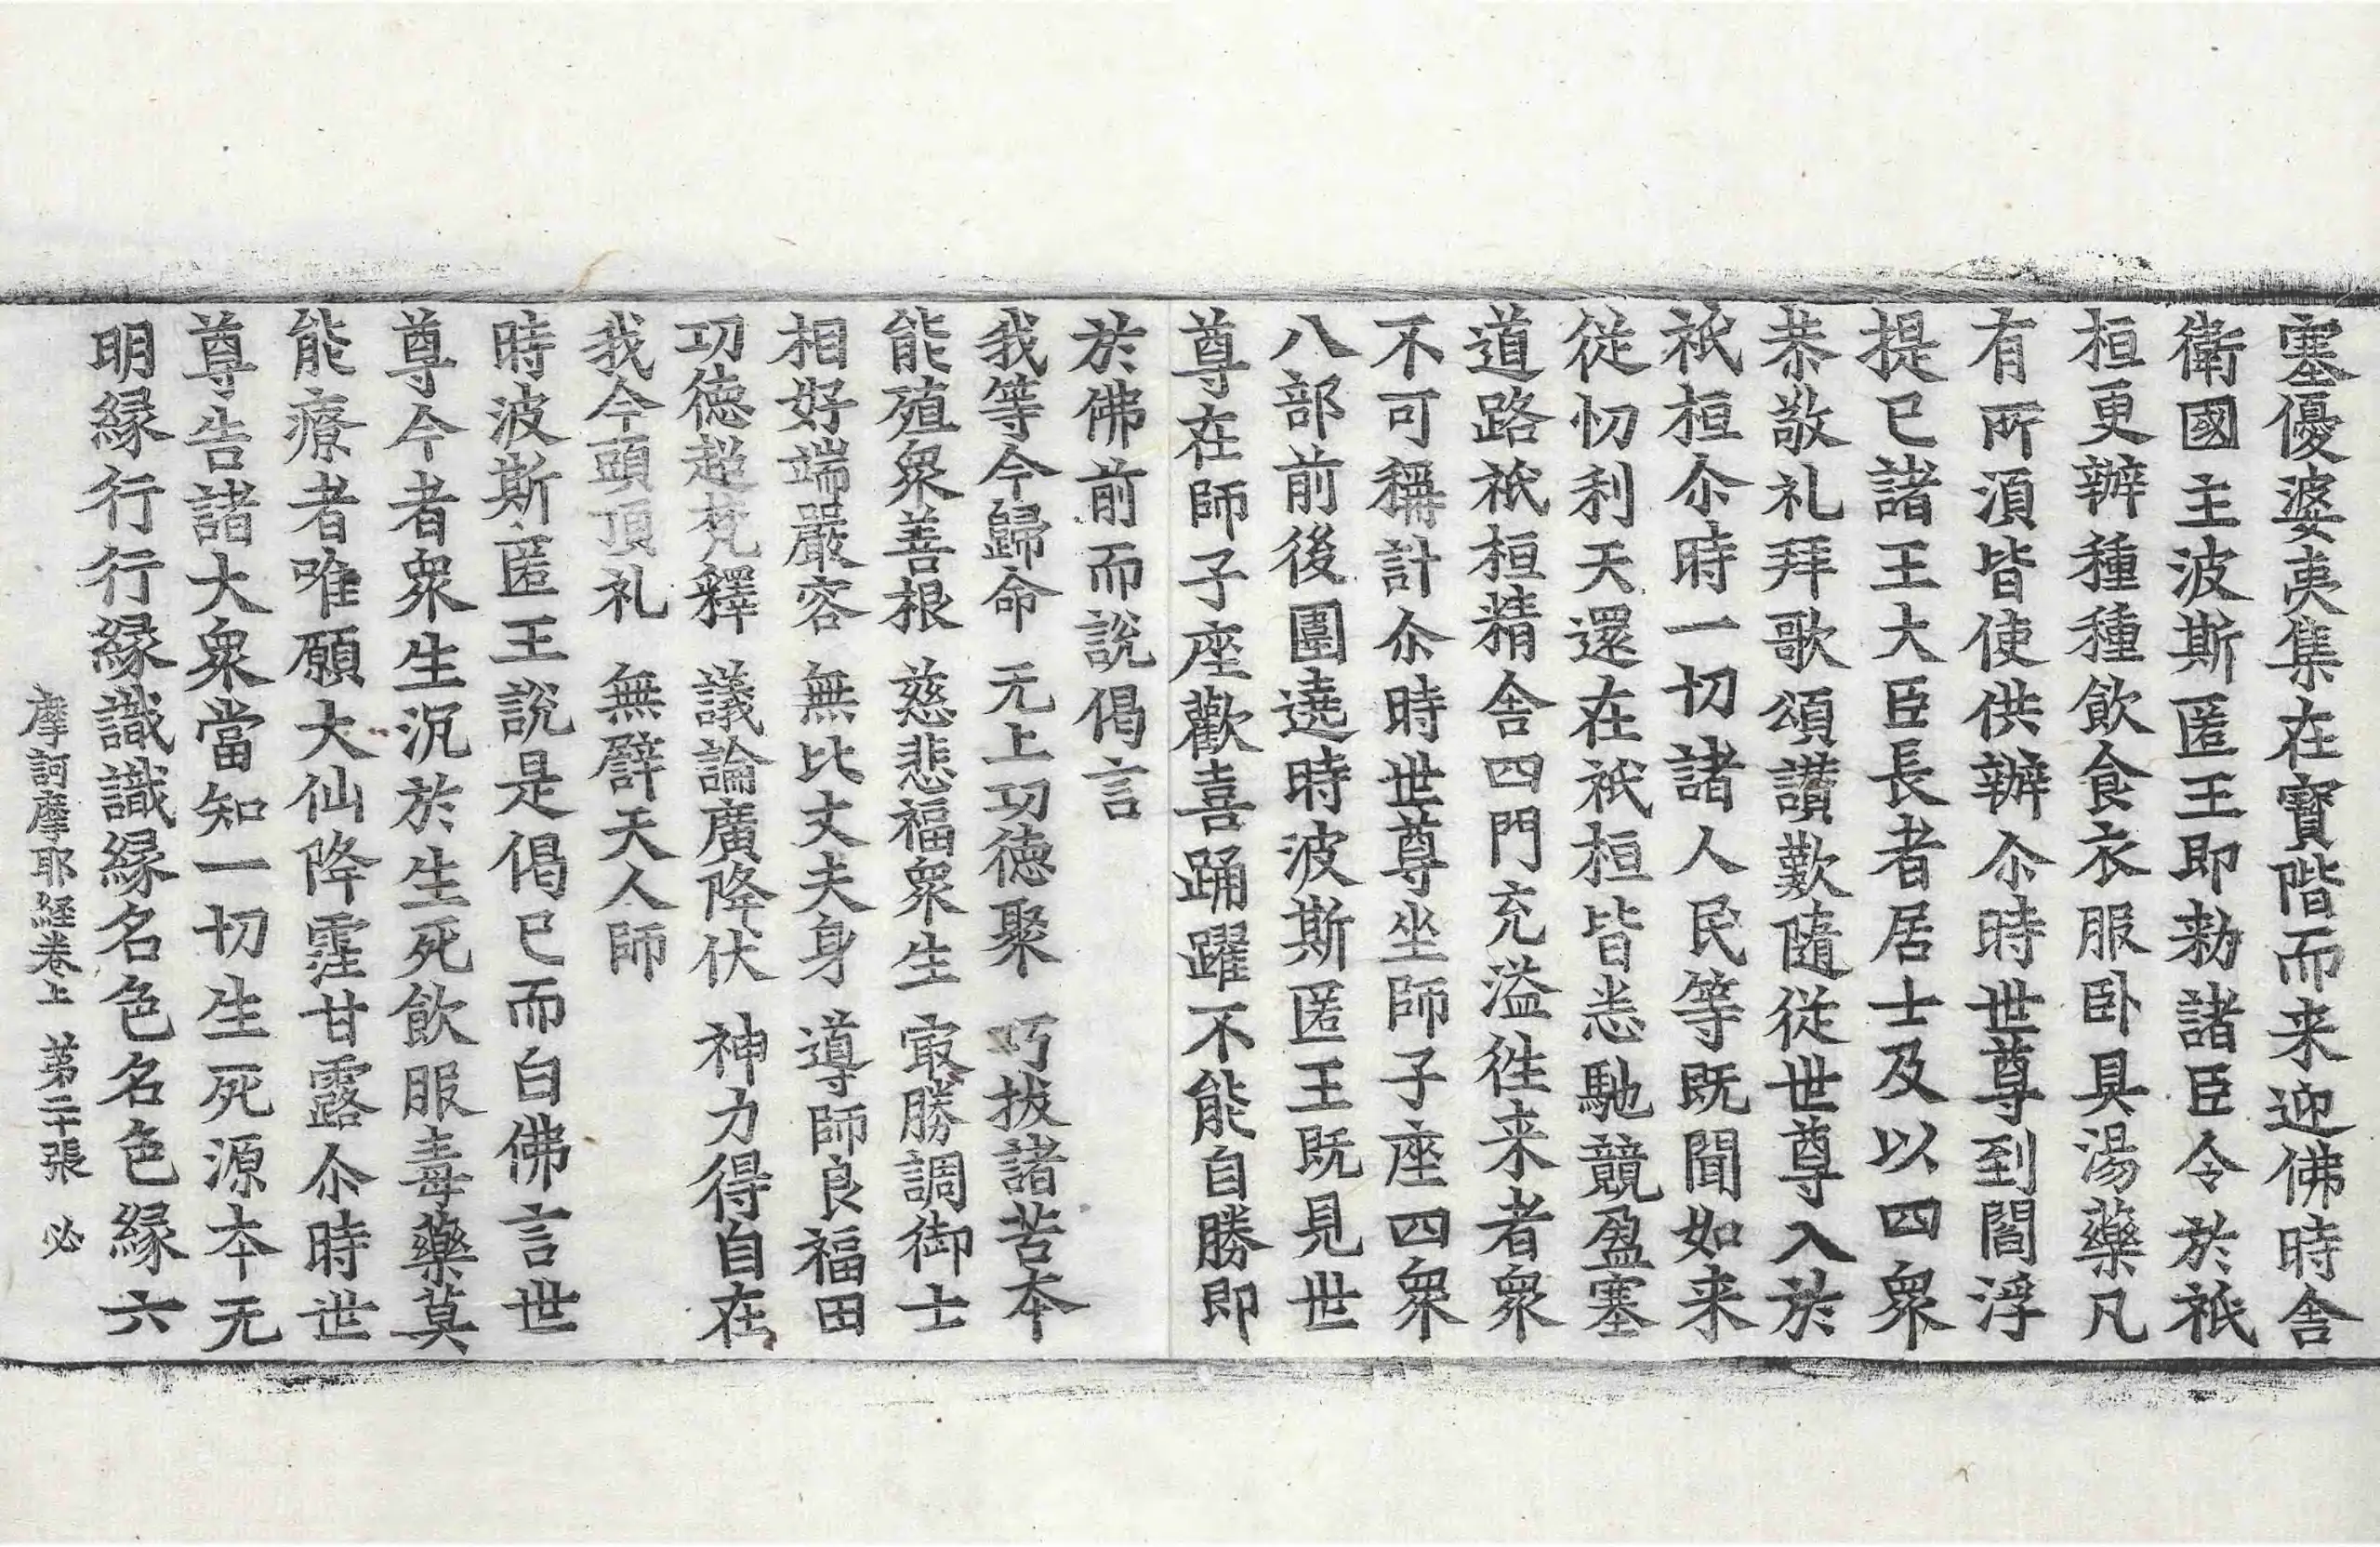 塞優婆夷集在寶階而来迎佛時舎
衛國主波斯匿王即勑諸臣令於祇
桓更辦種種飲食衣服卧具湯藥凡
有所須皆使供辦尒時世尊到閻浮
提已諸王大臣長者居士及以四衆
恭敬礼拜歌頌讃歎隨從世尊入於
祇桓尒時一切諸人民等既聞如来
從忉利天還在祇桓皆悉馳競盈塞
道路祇桓精舎四門充溢徃来者衆
不可稱計尒時世尊坐師子座四衆
八部前後圍遶時波斯匿王既見世
尊在師子座歡喜踊躍不能自勝即
於佛前而說偈言
我等今歸命　无上功徳聚　巧拔諸苦本
能殖衆善根　慈悲福衆生　㝡勝調御士
相好端嚴容　無比丈夫身　導師良福田
功徳超梵釋　議論廣降伏　神力得自在
我今頭頂礼　無譬天人師
時波斯匿王說是偈已而白佛言世
尊今者衆生沉於生死飲服毒藥莫
能療者唯願大仙降霔甘露尒時世
尊告諸大衆當知一切生死源本无
明縁行行縁識識縁名色名色縁六
摩訶摩耶経卷上　第二十張　必